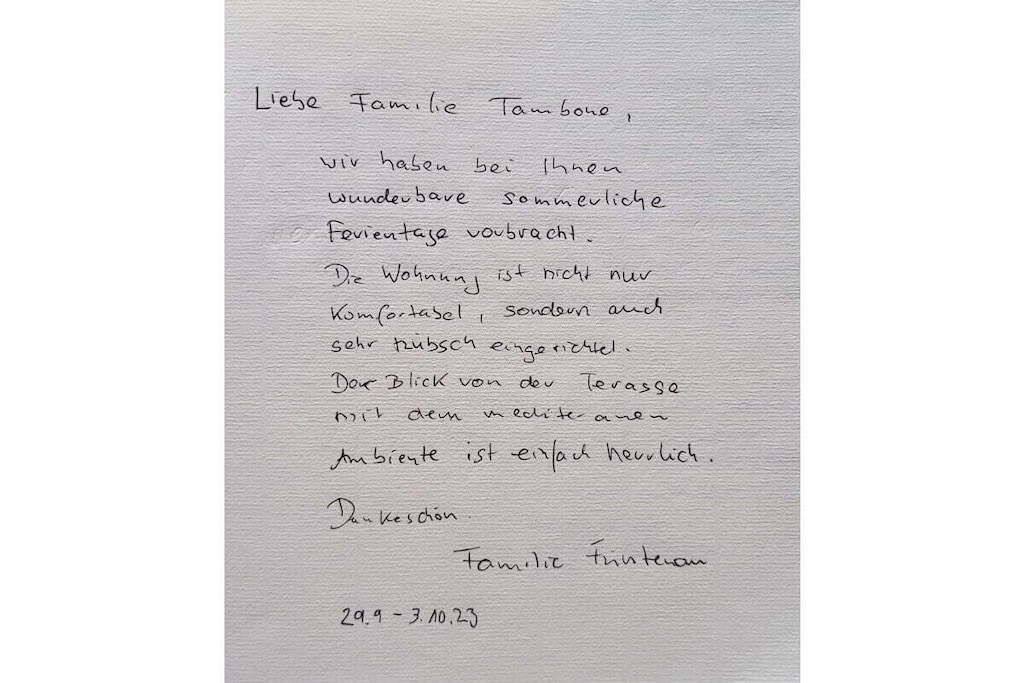 Liebe Familie Tambone,
wir haben bei Ihnen
wunderbare sommerliche
Ferientage verbracht.
Die Wohnung ist nicht nur
Komfortabel, sondern auch
sehr hübsch eingerichtet.
Der Blick von der Terasse
mit dem mediteranen
Ambiente ist einfach herrlich.
Dankeschön.
Familie
29.9 - 3.10.23